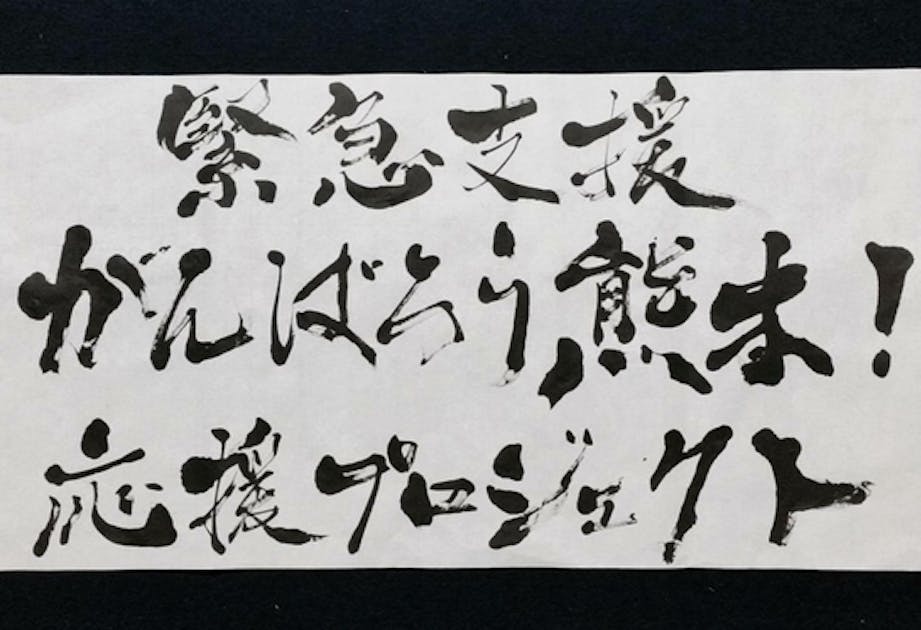 緊急支援
がんばろう熊本！
応援プロジェクト